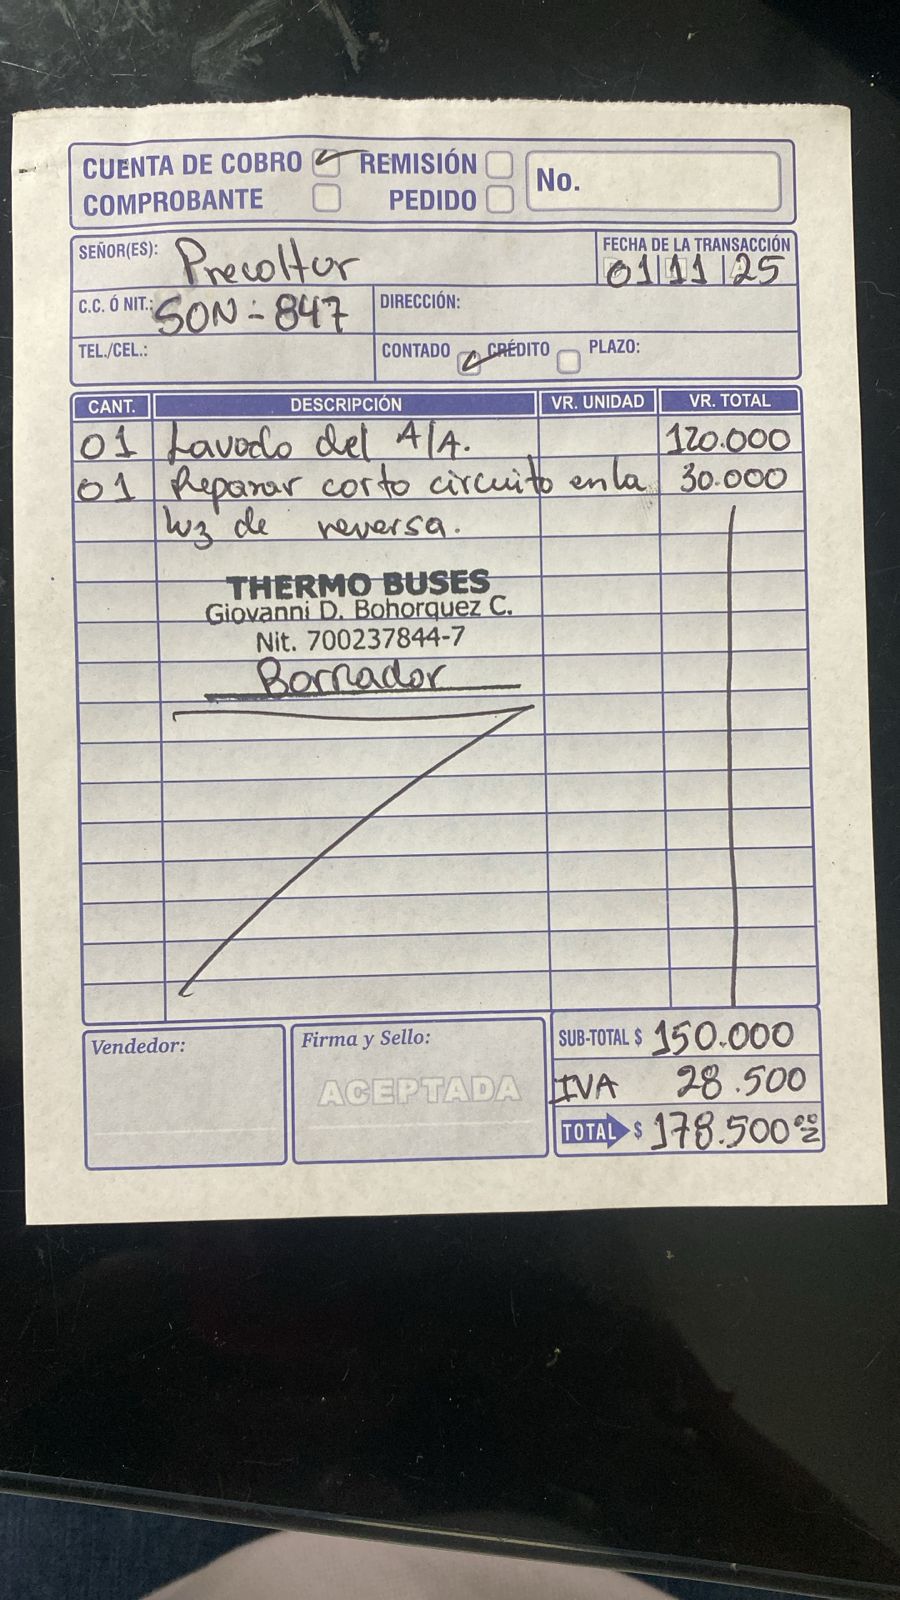 CUENTA DE COBRO REMISIÓN No.
COMPROBANTE PEDIDO
SEÑOR(ES): Precoltur
FECHA DE LA TRANSACCIÓN
01 11 25
C.C. Ó NIT.: SON-847 DIRECCIÓN:
TEL./CEL.: CONTADO CRÉDITO PLAZO:
CANT. DESCRIPCIÓN VR. UNIDAD VR. TOTAL
01 Lavado del A/A. 120.000
01 Reparar corto circuito en la 30.000
luz de reversa.
THERMO BUSES
Giovanni D. Bohorquez C.
Nit. 700237844-7
Borrador
Vendedor: Firma y Sello: SUB-TOTAL $ 150.000
ACEPTADA IVA 28.500
TOTAL $ 178.500